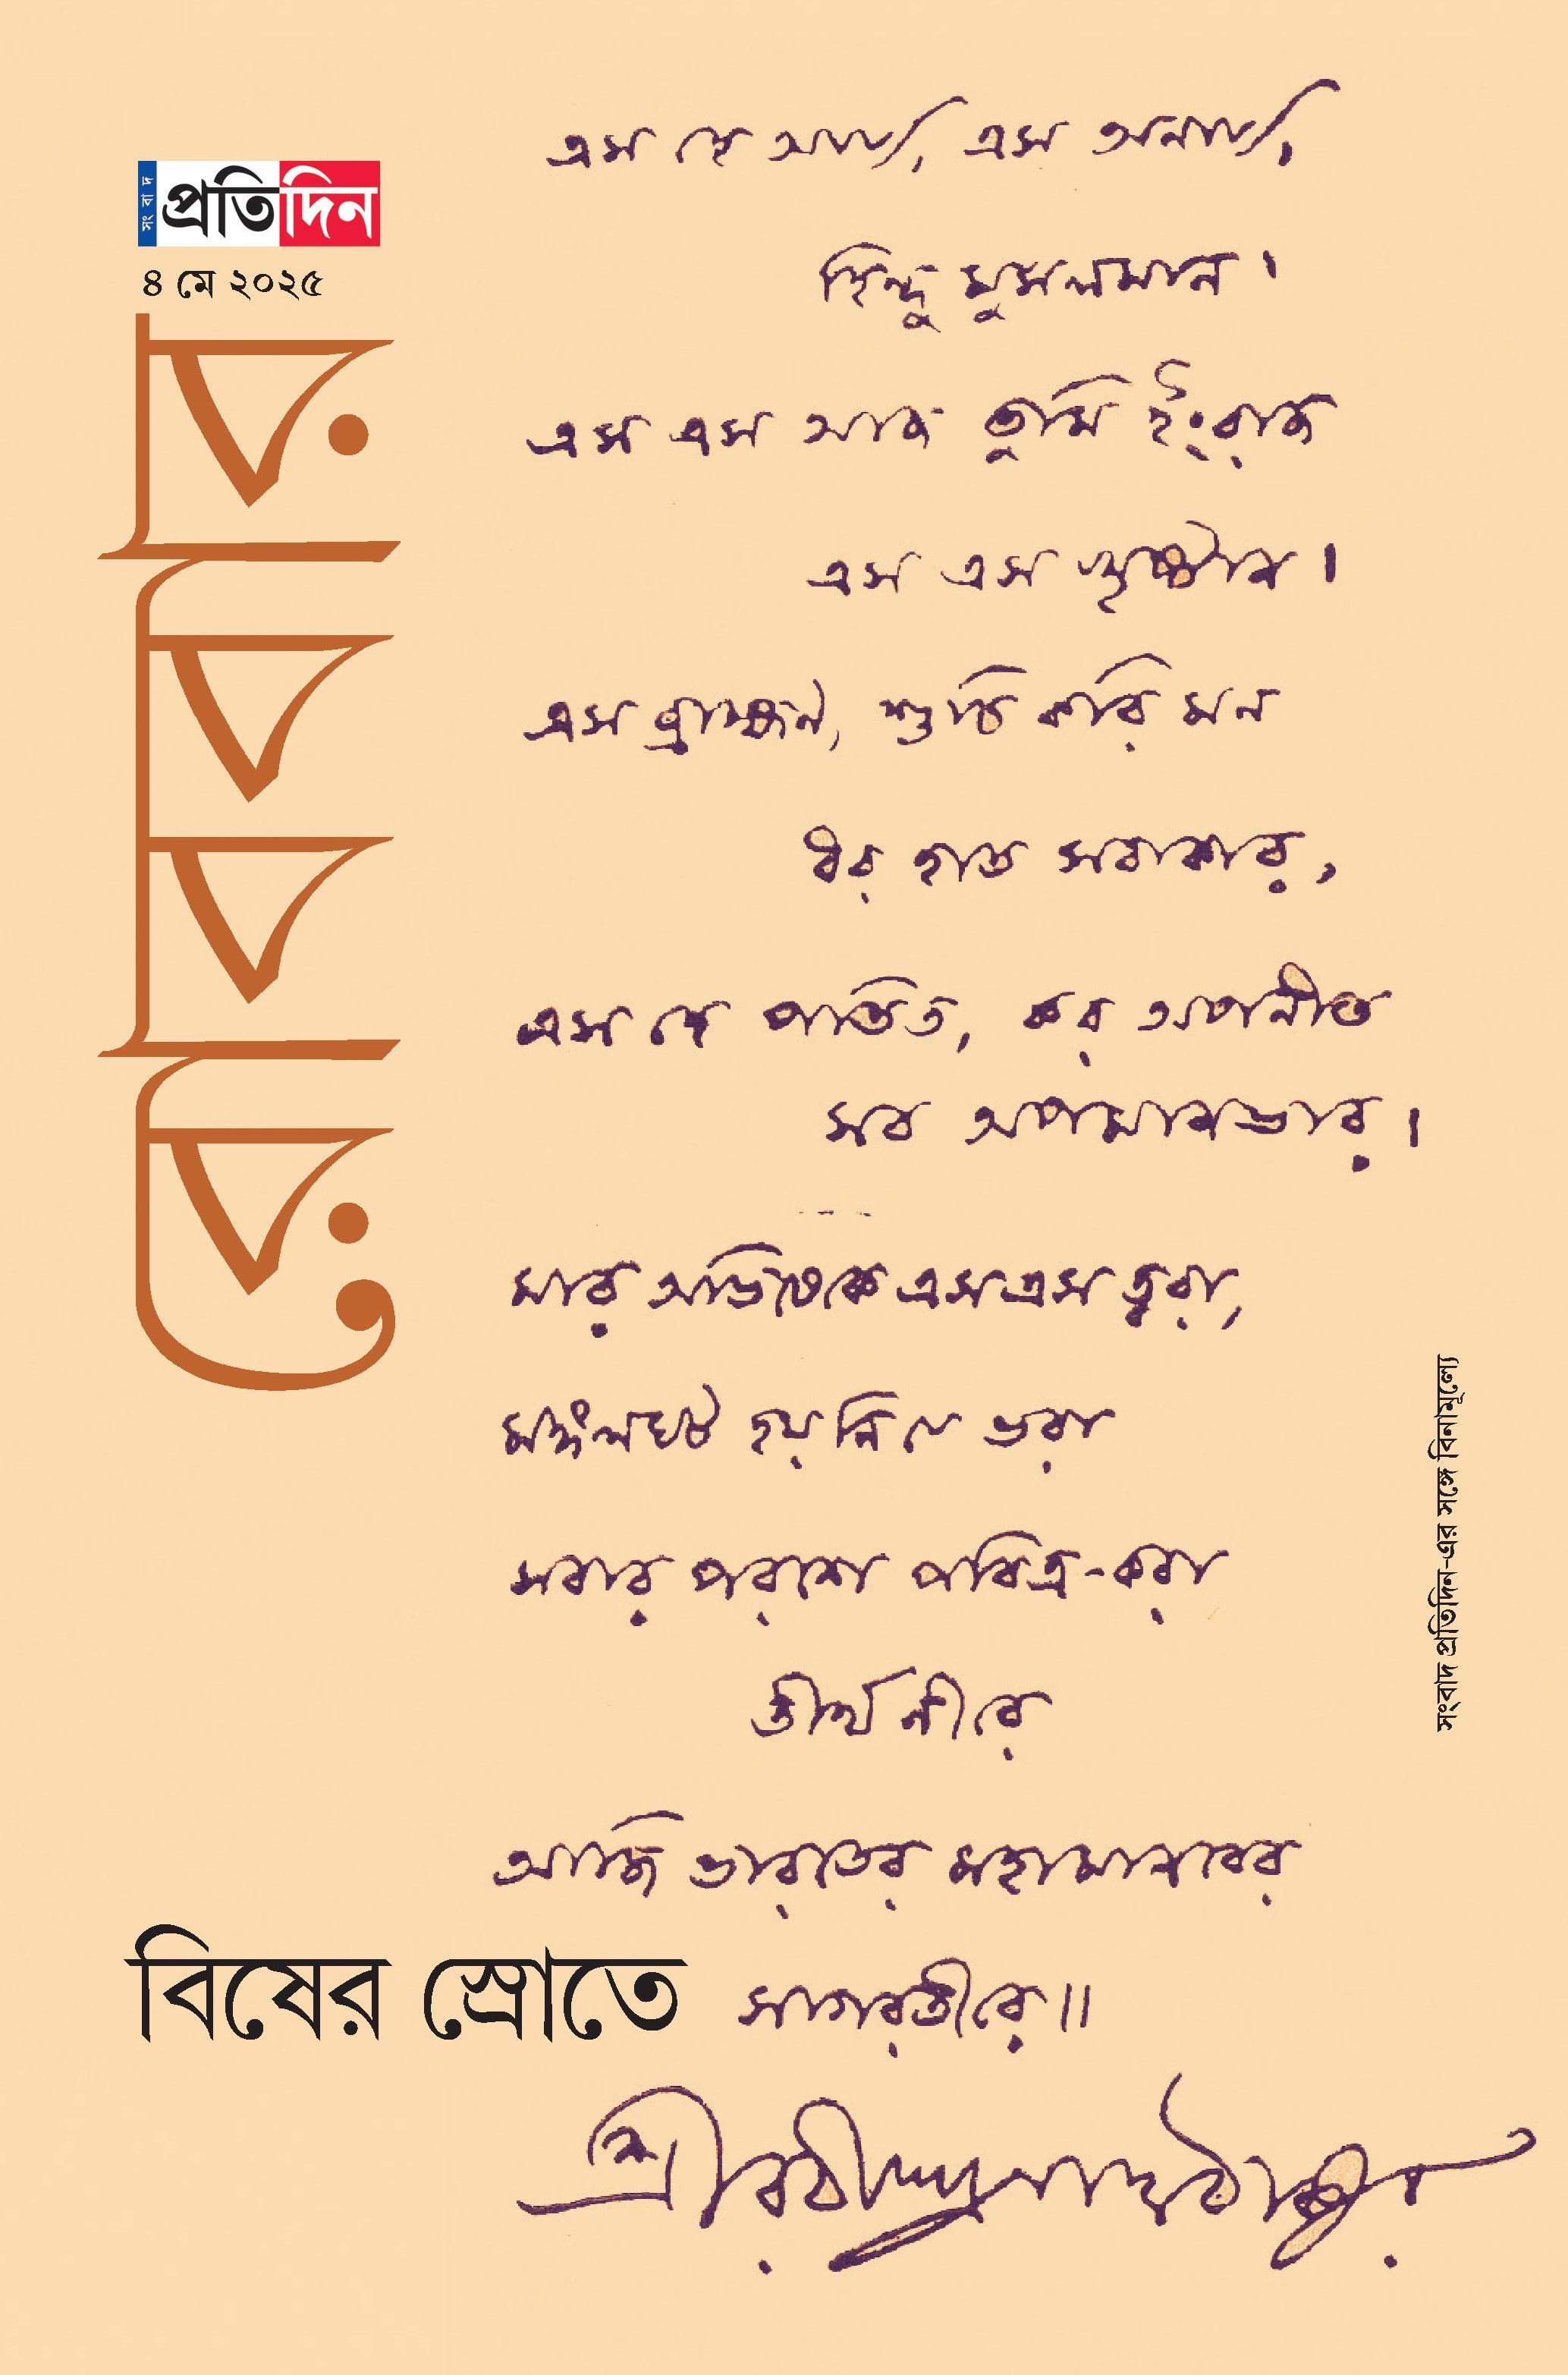 সংবাদ প্রতিদিন
৪ মে ২০২৫
রোববার
এস হে আর্য্য, এস অনার্য্য,
হিন্দু মুসলমান।
এস এস আজ তুমি ইংরাজ
এস এস খৃষ্টান।
এস ব্রাহ্মণ, শুচি করি মন
ধর হাত সবাকার,
এস হে পতিত, কর অপনীত
সব অপমানভার।
মার অভিষেকে এস এস ত্বরা,
মঙ্গলঘট হয়নি যে ভরা
সবার পরশে পবিত্র-করা
তীর্থনীরে
আজি ভারতের মহামানবের
সাগরতীরে॥
শ্রীরবীন্দ্রনাথ ঠাকুর
বিষের স্রোতে
সংবাদ প্রতিদিন-এর সঙ্গে বিনামূল্যে